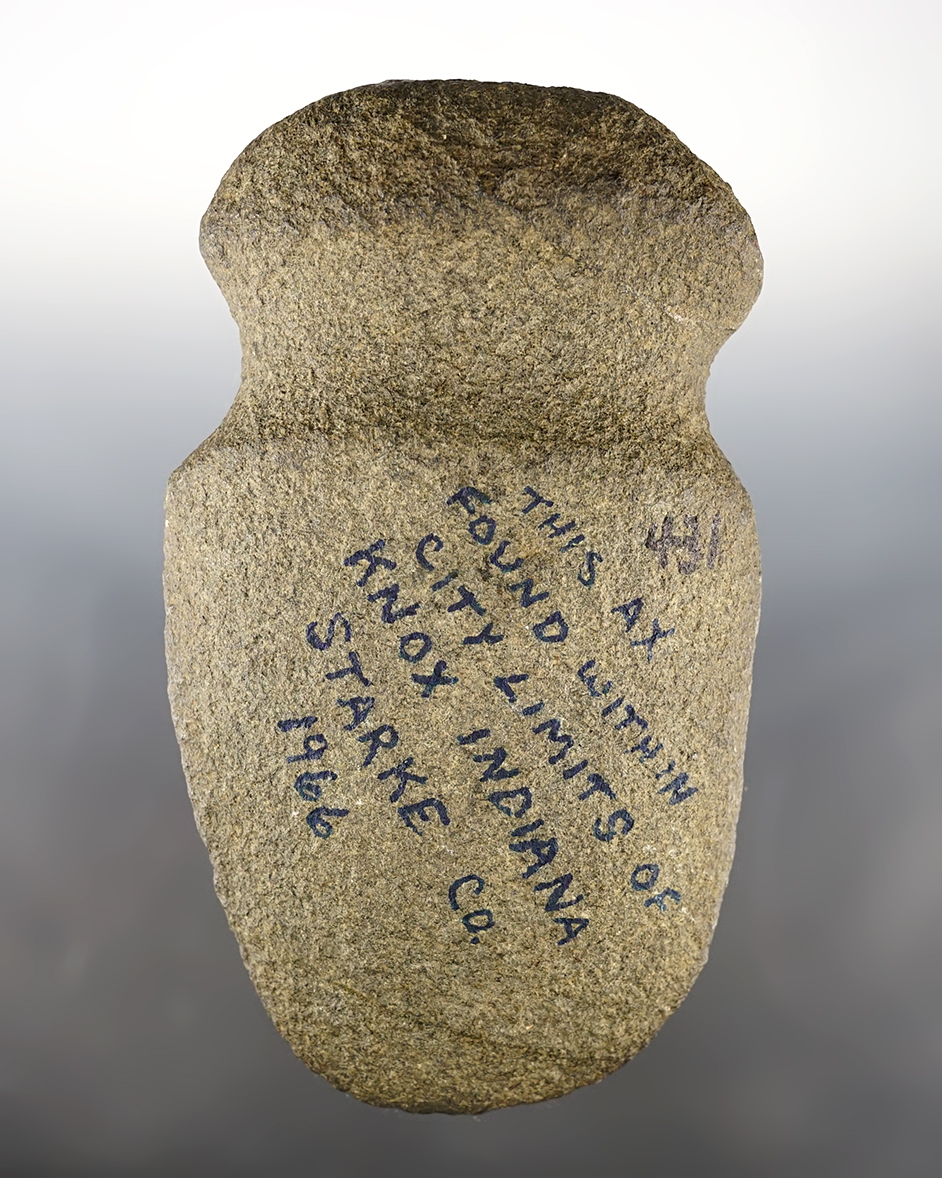 THIS AX
FOUND WITHIN
CITY LIMITS OF
KNOX INDIANA
STARKE CO.
1966
431